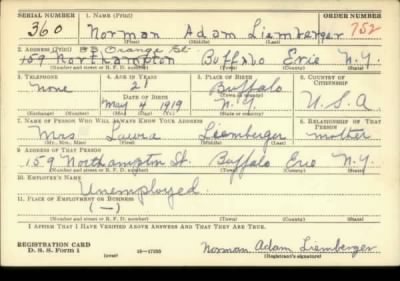 SERIAL NUMBER 1. NAME (Print) ORDER NUMBER
360 Norman Adam Liemberger 752
(First) (Middle) (Last)
2. ADDRESS (Print) Orange St.
159 Northampton Buffalo Erie N.Y.
(Number and street or R. F. D. number) (Town) (County) (State)
3. TELEPHONE 4. AGE IN YEARS 5. PLACE OF BIRTH 6. COUNTRY OF CITIZENSHIP
None 21 Buffalo
DATE OF BIRTH (Town or county)
May 4 1919 N.Y. U.S.A
(Exchange) (Number) (Mo.) (Day) (Yr.) (State or country)
7. NAME OF PERSON WHO WILL ALWAYS KNOW YOUR ADDRESS 8. RELATIONSHIP OF THAT PERSON
Mrs Laura Liemberger mother
(Mr., Mrs., Miss) (First) (Middle) (Last)
9. ADDRESS OF THAT PERSON
159 Northampton St. Buffalo Erie N.Y.
(Number and street or R. F. D. number) (Town) (County) (State)
10. EMPLOYER'S NAME
Unemployed.
11. PLACE OF EMPLOYMENT OR BUSINESS
(—)
(Number and street or R. F. D. number) (Town) (County) (State)
I AFFIRM THAT I HAVE VERIFIED ABOVE ANSWERS AND THAT THEY ARE TRUE.
REGISTRATION CARD
D. S. S. Form 1 (over) 16—17105 Norman Adam Liemberger
(Registrant's signature)